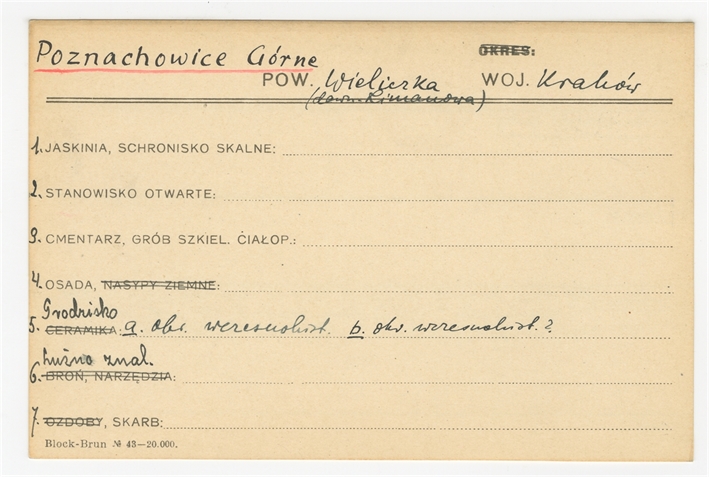 Poznachowice Górne OKRES:
POW. Wieliczka WOJ. Kraków
(dawn. Limanowa)
1. JASKINIA, SCHRONISKO SKALNE:
2. STANOWISKO OTWARTE:
3. CMENTARZ, GRÓB SZKIEL. CIAŁOP.:
4. OSADA, NASYPY ZIEMNE:
Grodzisko
5. CERAMIKA: a. okr. wczesnohist. b. okr. wczesnohist.?
Luźno znal.
6. BROŃ, NARZĘDZIA:
7. OZDOBY, SKARB:
Block-Brun № 43—20.000.